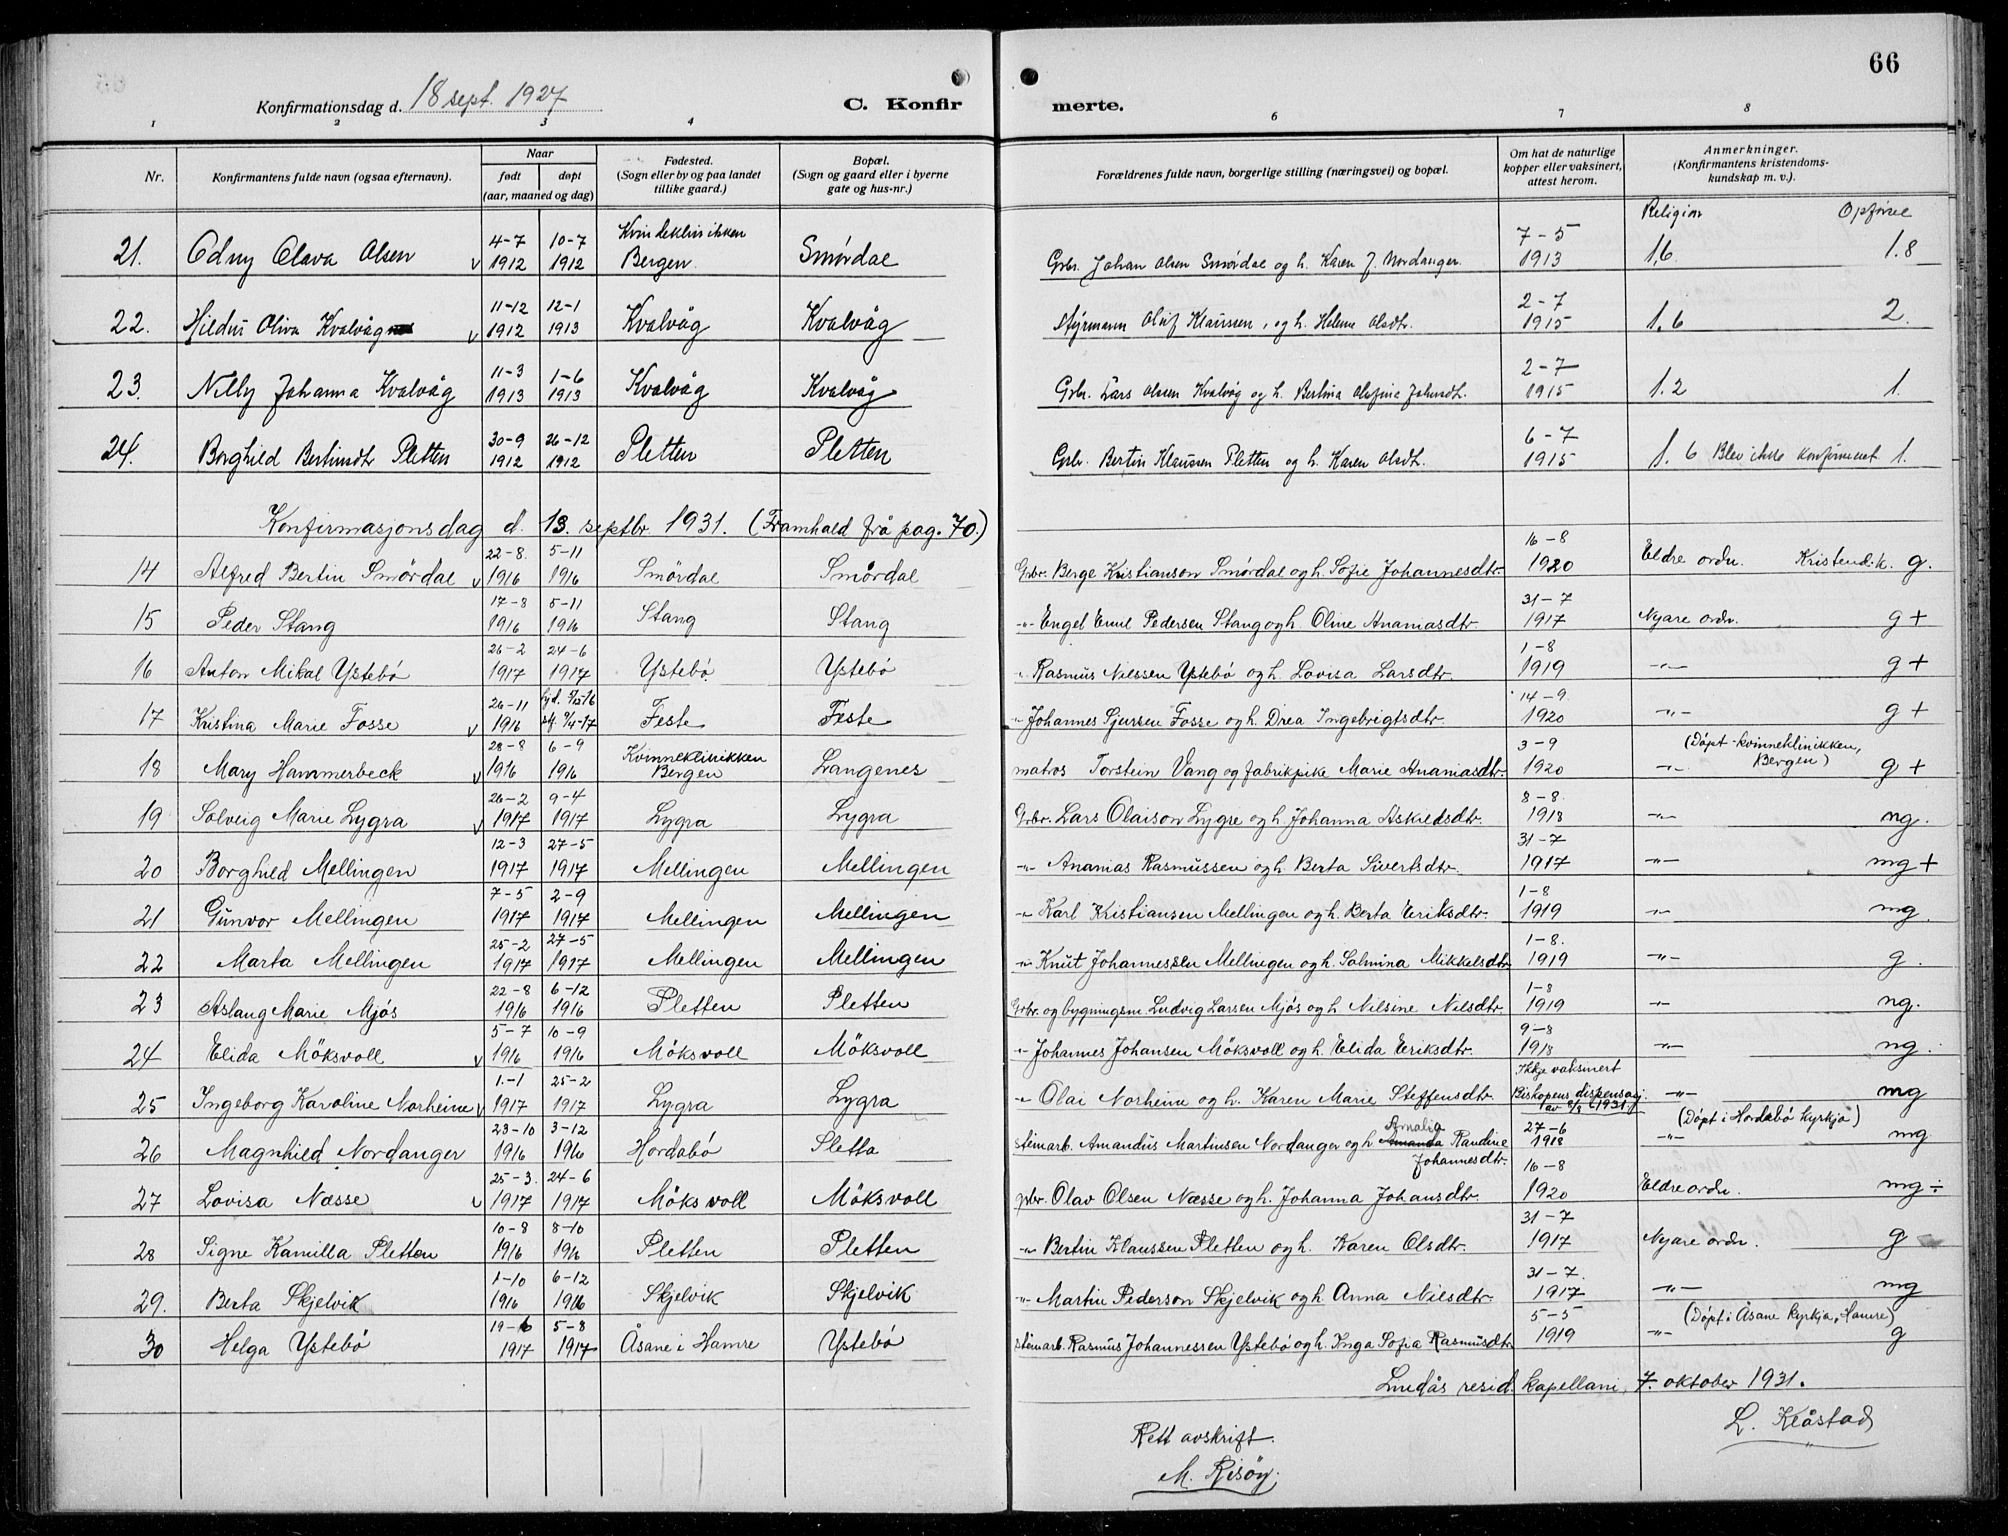 66
Konfirmationsdag d. 18 sept. 1927
C. Konfirmerte.
1 2 3 4 6 7 8
Nr.
Konfirmantens fulde navn (ogsaa efternavn).
Naar
født døpt
(aar, maaned og dag)
Fødested.
(Sogn eller by og paa landet tillike gaard.)
Bopæl.
(Sogn og gaard eller i byerne gate og hus-nr.)
Forældrenes fulde navn, borgerlige stilling (næringsvei) og bopæl.
Om hat de naturlige kopper eller vaksinert, attest herom.
Anmerkninger.
(Konfirmantens kristendoms-kundskap m. v.).
Religion Opførsel
21. Odny Olava Olsen v 4-7 1912 10-7 1912 Kvindeklinikken Bergen Smørdal Grbr. Johan Olsen Smørdal og h. Karen J. Nordanger. 7-5 1913 1,6 1.8
22. Hildur Oliva Kvalvåg v 11-12 1912 12-1 1913 Kvalvåg Kvalvåg Styrmann Oluf Klaussen, og h. Helene Olsdtr. 2-7 1915 1.6 2.
23. Nelly Johanna Kvalvåg 11-3 1913 1-6 1913 Kvalvåg Kvalvåg Grbr. Lars Olsen Kvalvåg og h. Bertina Olufine Johnsdt. 2-7 1915 1.2 1.
24. Borghild Bertinsdtr Pletten 30-9 1912 26-12 1912 Pletten Pletten Grbr. Bertin Klaussen Pletten og h. Karen Olsdt. 6-7 1915 1.6 Blev ikke konfirmeret 1.
Konfirmasjonsdag d. 13. septbr. 1931. (Framhald frå pag. 70.)
14 Alfred Bertin Smørdal v 22-8. 1916 5-11 1916 Smørdal Smørdal Grbr. Berge Kristianson Smørdal og h. Sofie Johannesdtr. 16-8 1920 Eldre ordn. Kristend.k. g.
15 Peder Stang 17-8 1916 5-11 1916 Stang Stang -"- Engel Emil Pedersen Stang og h. Oline Ananiasdtr. 31-7 1917 Nyare ordn. g +
16 Anton Mikal Ystebø 26-2 1917 24-6 1917 Ystebø Ystebø " Rasmus Nilssen Ystebø og h. Lovisa Larsdtr. 1-8 1919 -"- g +
17 Kristina Marie Fosse v 26-11 1916 hjd. 5/12-16 stf. 9/4-17 Feste Feste " Johannes Sjursen Fosse og h. Drea Ingebrigtsdtr. 14-9. 1920 -"- g +
18 Mary Hammerbeck v 28-8 1916 6-9 1916 Kvinneklinikken Bergen Langenes matros Torstein Vang og fabrikpike Marie Ananiasdtr. 3-9 1920 -"- (Døpt-kvinneklinikken, Bergen) g +
19 Solveig Marie Lygra v 26-2 1917 9-4 1917 Lygra Lygra Grbr. Lars Olaison Lygre og h. Johanna Askildsdtr. 8-8. 1918 -"- ng.
20 Borghild Mellingen 12-3 1917 27-5 1917 Mellingen Mellingen -"- Ananias Rasmussen og h. Berta Sivertsdtr. 31-7 1917 -"- mg +
21 Gunvor Mellingen 7-5 1917 2-9 1917 Mellingen Mellingen -"- Karl Kristiansen Mellingen og h. Berta Eriksdtr. 1-8 1919 -"- mg.
22 Marta Mellingen 25-2 1917 27-5 1917 Mellingen Mellingen -"- Knut Johannessen Mellingen og h. Salmina Mikkelsdtr 1-8. 1919 -"- g.
23 Aslaug Marie Mjøs 22-8 1916 6-12 1916 Pletten Pletten Grbr. og bygningsm. Ludvig Larsen Mjøs og h. Nilsine Nilsdtr. 1-8 1919 -"- ng.
24 Elida Möksvoll v 5-7 1916 10-9 1916 Möksvoll Möksvoll -"- Johannes Johansen Möksvoll og h. Elida Eriksdtr. 9-8 1918 -"- ng.
25 Ingeborg Karoline Norheim v 1.-1 1917 25-2 1917 Lygra Lygra -"- Olai Norheim og h. Karen Marie Steffensdtr. Ikkje vaksinert Biskopens dispensasj. av 8/8 1931. -"- mg
26 Magnhild Nordanger 23-10 1916 3-12 1916 Hordabø Pletta steinarb. Amandus Martinsen Nordanger og h. Amanda Amalia Randine Johannesdtr. 27-6 1918 -"- (Døpt i Hordabø kyrkja) mg
27 Lovisa Næsse v 25-3. 1917 24-6 1917 Möksvoll Möksvoll grbr. Olav Olsen Næsse og h. Johanna Johansdtr. 16-8 1920 Eldre ordn. mg ÷
28 Signe Kamilla Pletten 10-8 1916 8-10 1916 Pletten Pletten -"- Bertin Klaussen Pletten og h. Karen Olsdtr. 31-7 1917 Nyare ordn. g
29. Berta Skjelvik 1-10 1916 6-12 1916 Skjelvik Skjelvik -"- Martin Pederson Skjelvik og h. Anna Nilsdtr. 31-7. 1917 -"- mg
30 Helga Ystebø 19-6 1917 5-8 1917 Åsane i Hamre Ystebø steinarb. Rasmus Johannessen Ystebø og h. Inga Sofia Rasmusdtr. 5-5 1919 -"- (Døpt i Åsane kyrkja, Hamre) g
Lindås resid. kapellani, 7. oktober 1931.
L. Kråstad
Rett avskrift.
M. Risöy.